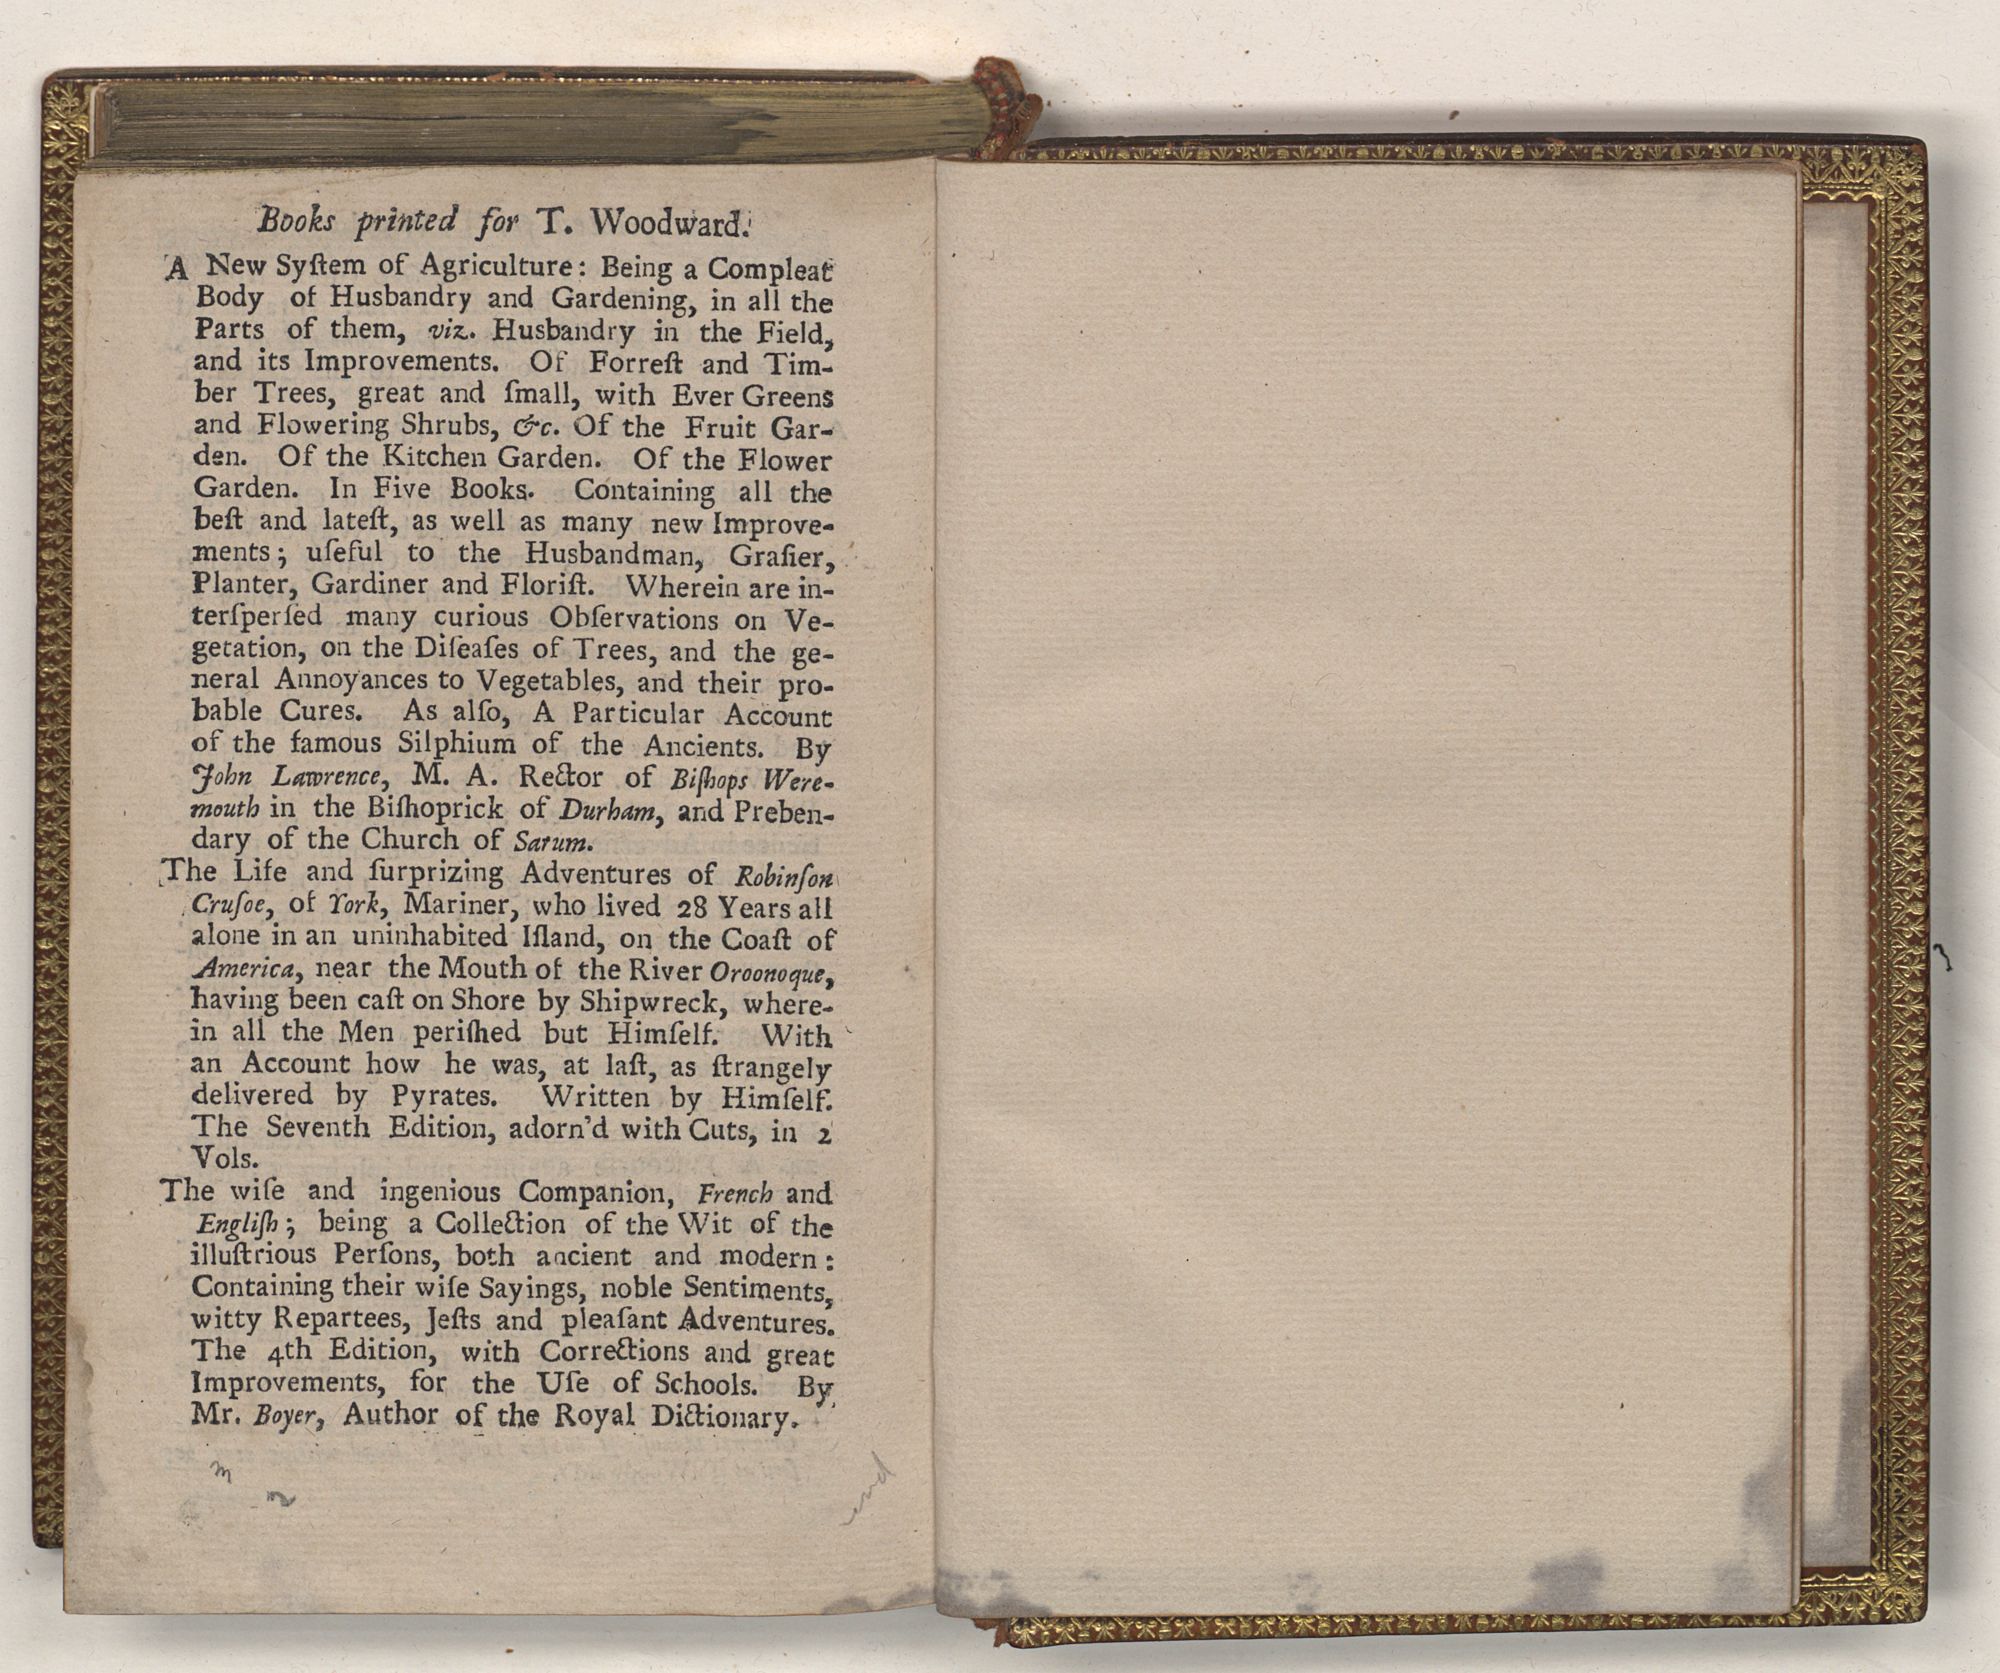 Books printed for T. Woodward.
A New Syſtem of Agriculture: Being a Compleat
Body of Husbandry and Gardening, in all the
Parts of them, viz. Husbandry in the Field,
and its Improvements. Of Forreſt and Tim-
ber Trees, great and ſmall, with Ever Greens
and Flowering Shrubs, &c. Of the Fruit Gar-
den. Of the Kitchen Garden. Of the Flower
Garden. In Five Books. Containing all the
beſt and lateſt, as well as many new Improve-
ments; uſeful to the Husbandman, Graſier,
Planter, Gardiner and Floriſt. Wherein are in-
terſperſed many curious Obſervations on Ve-
getation, on the Diſeaſes of Trees, and the ge-
neral Annoyances to Vegetables, and their pro-
bable Cures. As alſo, A Particular Account
of the famous Silphium of the Ancients. By
John Lawrence, M. A. Rector of Biſhops Were-
mouth in the Biſhoprick of Durham, and Preben-
dary of the Church of Sarum.
The Life and ſurprizing Adventures of Robinſon
Cruſoe, of York, Mariner, who lived 28 Years all
alone in an uninhabited Iſland, on the Coaſt of
America, near the Mouth of the River Oroonoque,
having been caſt on Shore by Shipwreck, where-
in all the Men periſhed but Himſelf. With
an Account how he was, at laſt, as ſtrangely
delivered by Pyrates. Written by Himſelf.
The Seventh Edition, adorn'd with Cuts, in 2
Vols.
The wiſe and ingenious Companion, French and
Engliſh; being a Collection of the Wit of the
illuſtrious Perſons, both ancient and modern:
Containing their wiſe Sayings, noble Sentiments,
witty Repartees, Jeſts and pleaſant Adventures.
The 4th Edition, with Corrections and great
Improvements, for the Uſe of Schools. By
Mr. Boyer, Author of the Royal Dictionary.
end